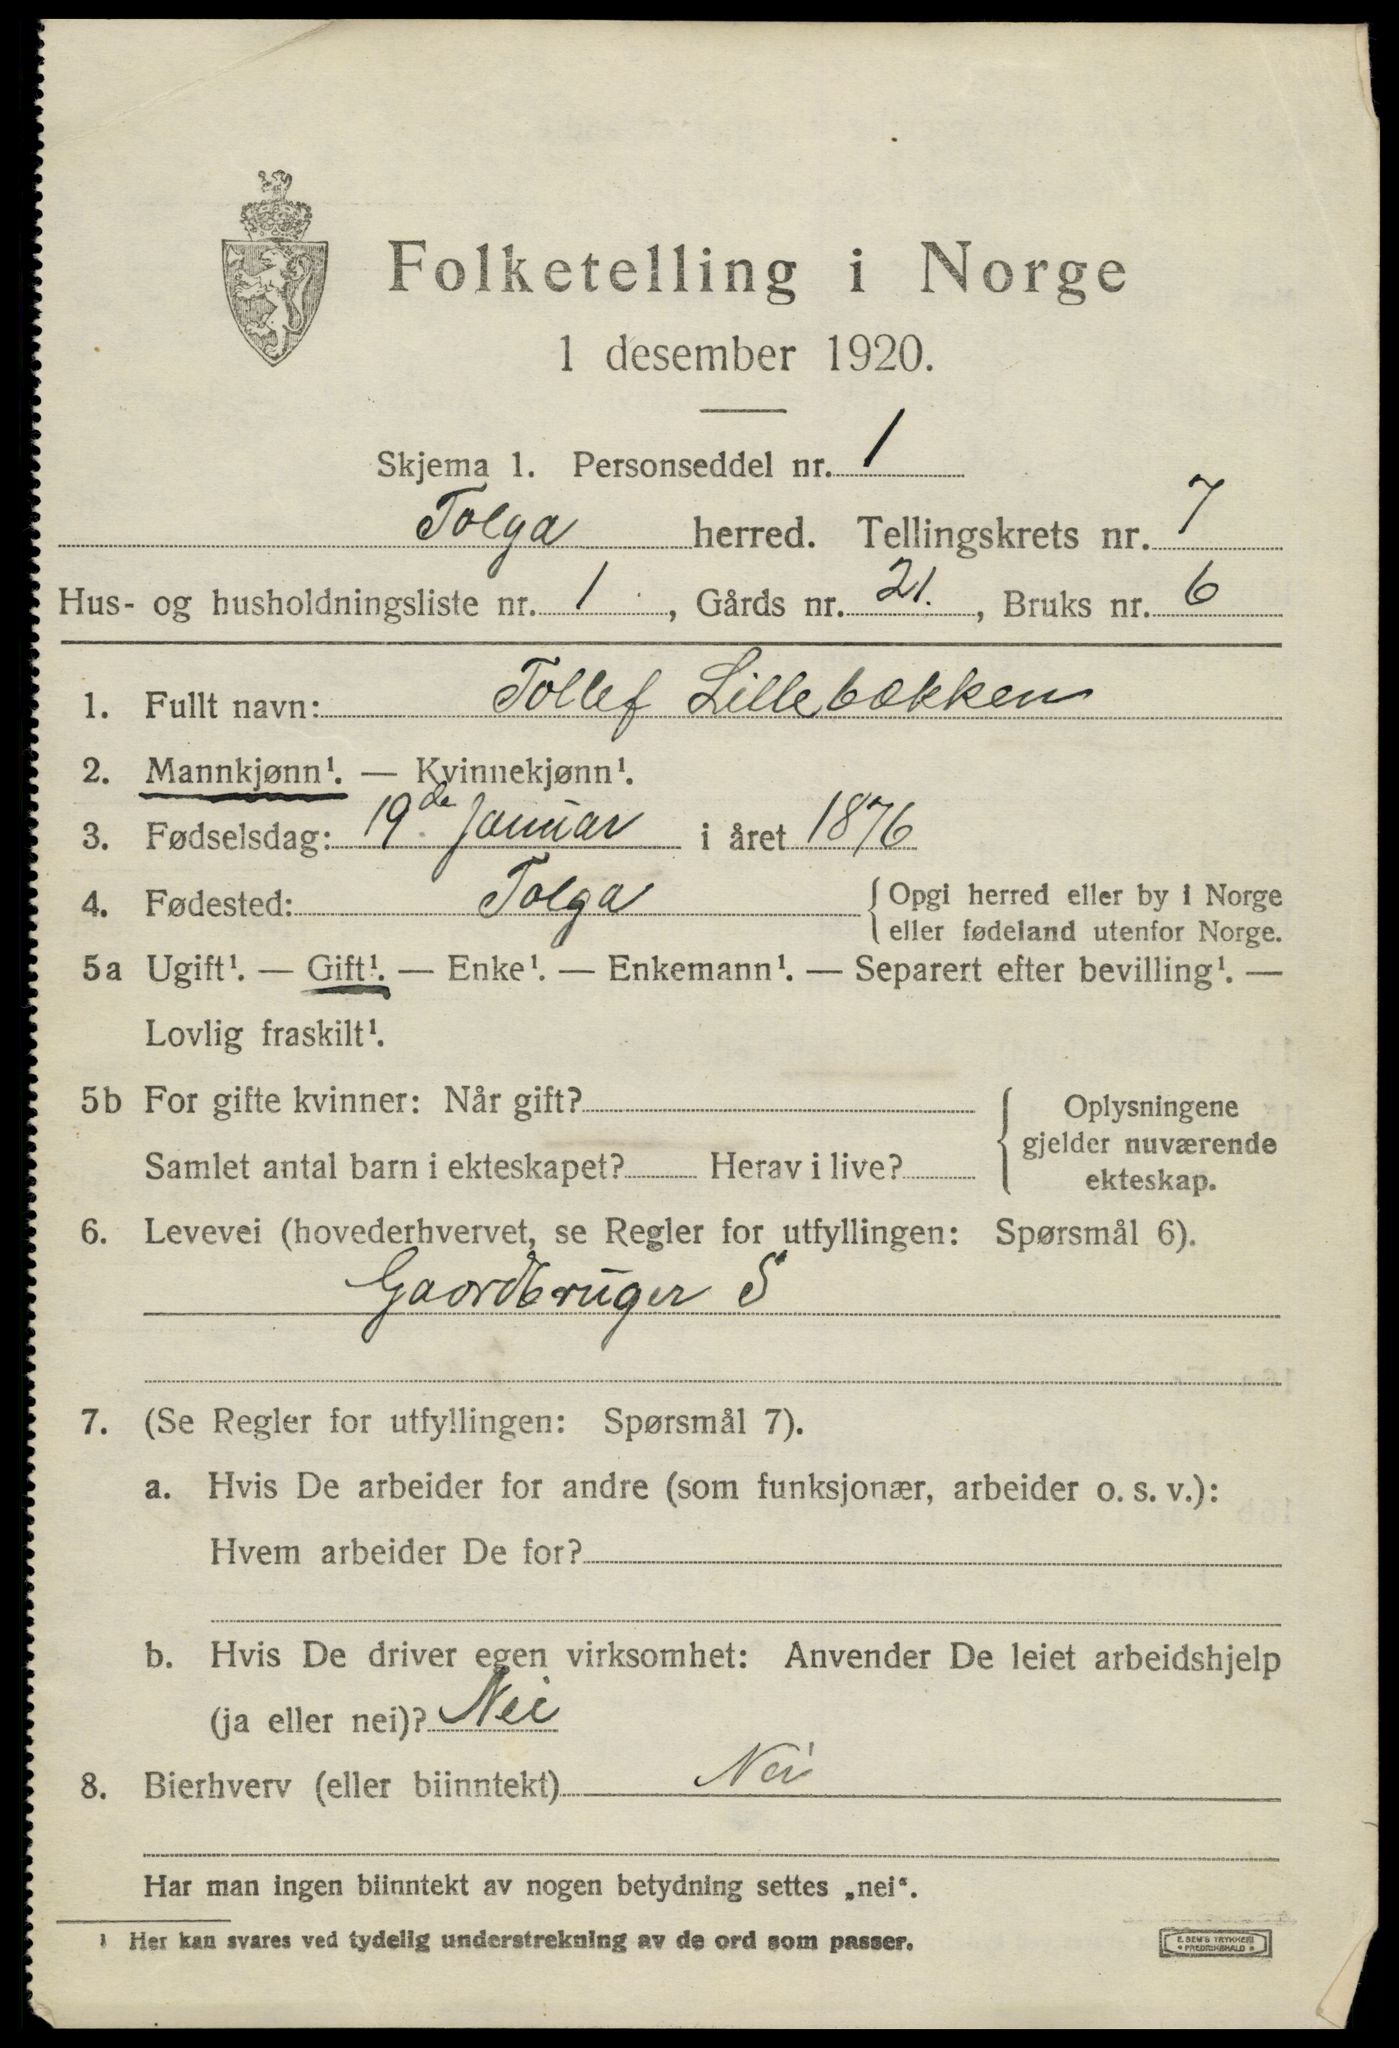 Folketelling i Norge
1 desember 1920.
Skjema 1. Personseddel nr. 1
Tolga herred. Tellingskrets nr. 7
Hus- og husholdningsliste nr. 1, Gårds nr. 21., Bruks nr. 6
1. Fullt navn: Tollef Lillebækken
2. Mannkjønn¹. — Kvinnekjønn¹.
3. Fødselsdag: 19de Januar i året 1876
4. Fødested: Tolga { Opgi herred eller by i Norge
eller fødeland utenfor Norge.
5a Ugift¹. — Gift¹. — Enke¹. — Enkemann¹. — Separert efter bevilling¹. —
Lovlig fraskilt¹.
5b For gifte kvinner: Når gift? { Oplysningene
gjelder nuværende
Samlet antal barn i ekteskapet? Herav i live?
ekteskap.
6. Levevei (hovederhvervet, se Regler for utfyllingen: Spørsmål 6).
Gaardbruger S
7. (Se Regler for utfyllingen: Spørsmål 7).
a. Hvis De arbeider for andre (som funksjonær, arbeider o. s. v.):
Hvem arbeider De for?
b. Hvis De driver egen virksomhet: Anvender De leiet arbeidshjelp
(ja eller nei)? Nei
8. Bierhverv (eller biinntekt) Nei
Har man ingen biinntekt av nogen betydning settes „nei“.
¹ Her kan svares ved tydelig understrekning av de ord som passer.
E. SEM'S TRYKKERI
FREDRIKSHALD